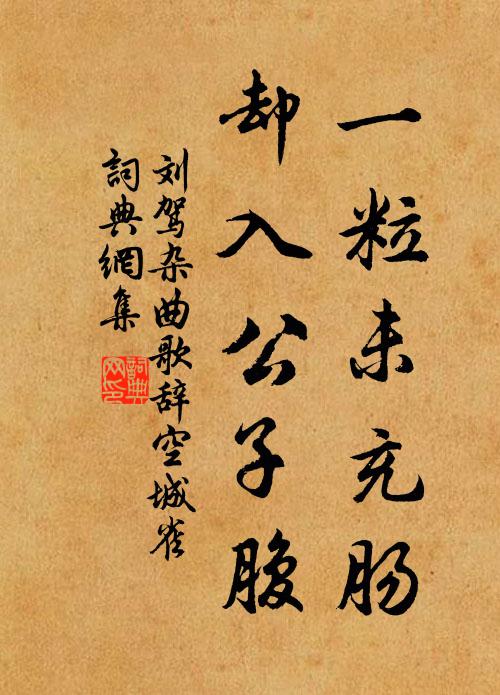 一粒未充肠
却入公子腹
刘驾杂曲歌辞空城雀
詞典網集
詞典網印